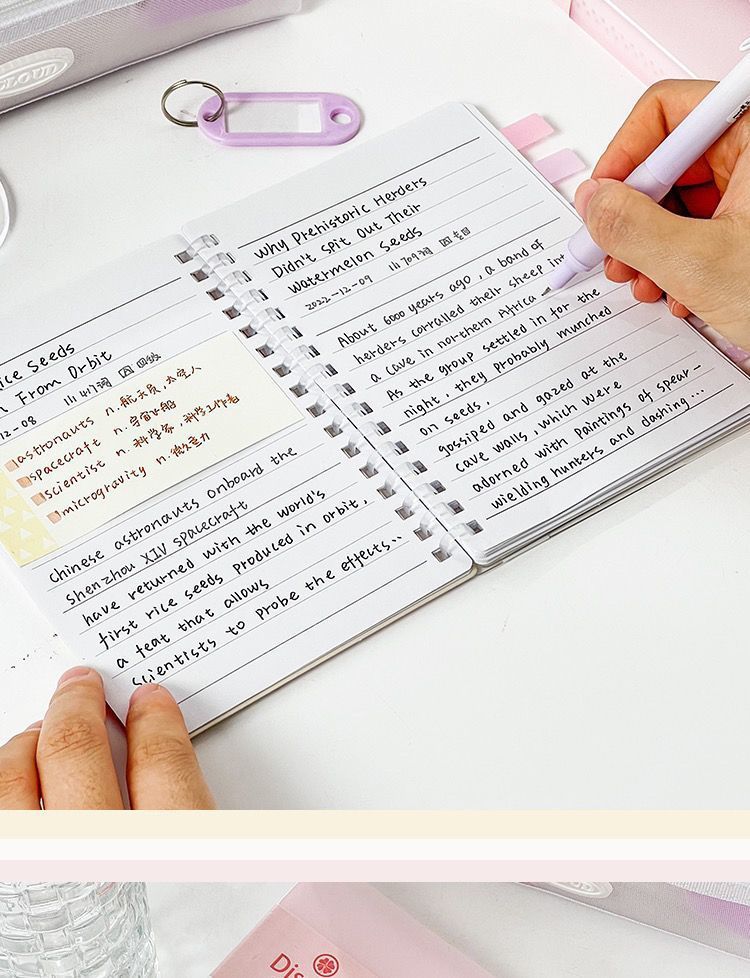 CLOUD
ice Seeds
From Orbit
12-08
astronauts n. 航天员,太空人
spacecraft n. 宇宙飞船
scientist n. 科学家,科学工作者
microgravity n. 微重力
Chinese astronauts onboard the
Shenzhou XIV spacecraft
have returned with the world's
first rice seeds produced in orbit,
a feat that allows
scientists to probe the effects..
Why Prehistoric Herders
Didn't Spit Out Their
Watermelon Seeds
2022-12-09 709词
About 6000 years ago, a band of
herders corralled their sheep int
a cave in northern Africa
As the group settled in for the
night, they probably munched
on seeds.
gossiped and gazed at the
cave walls, which were
adorned with paintings of spear-
wielding hunters and dashing...
Dis